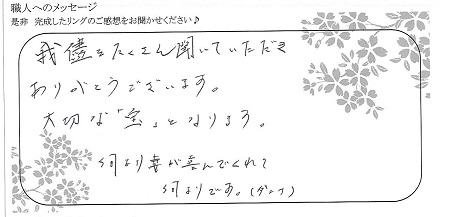 職人へのメッセージ
是非 完成したリングのご感想をお聞かせください♪
我儘をたくさん聞いていただき
ありがとうございます。
大切な「宝」となります。
何より妻が喜んでくれて
何よりです。(ダンナ)